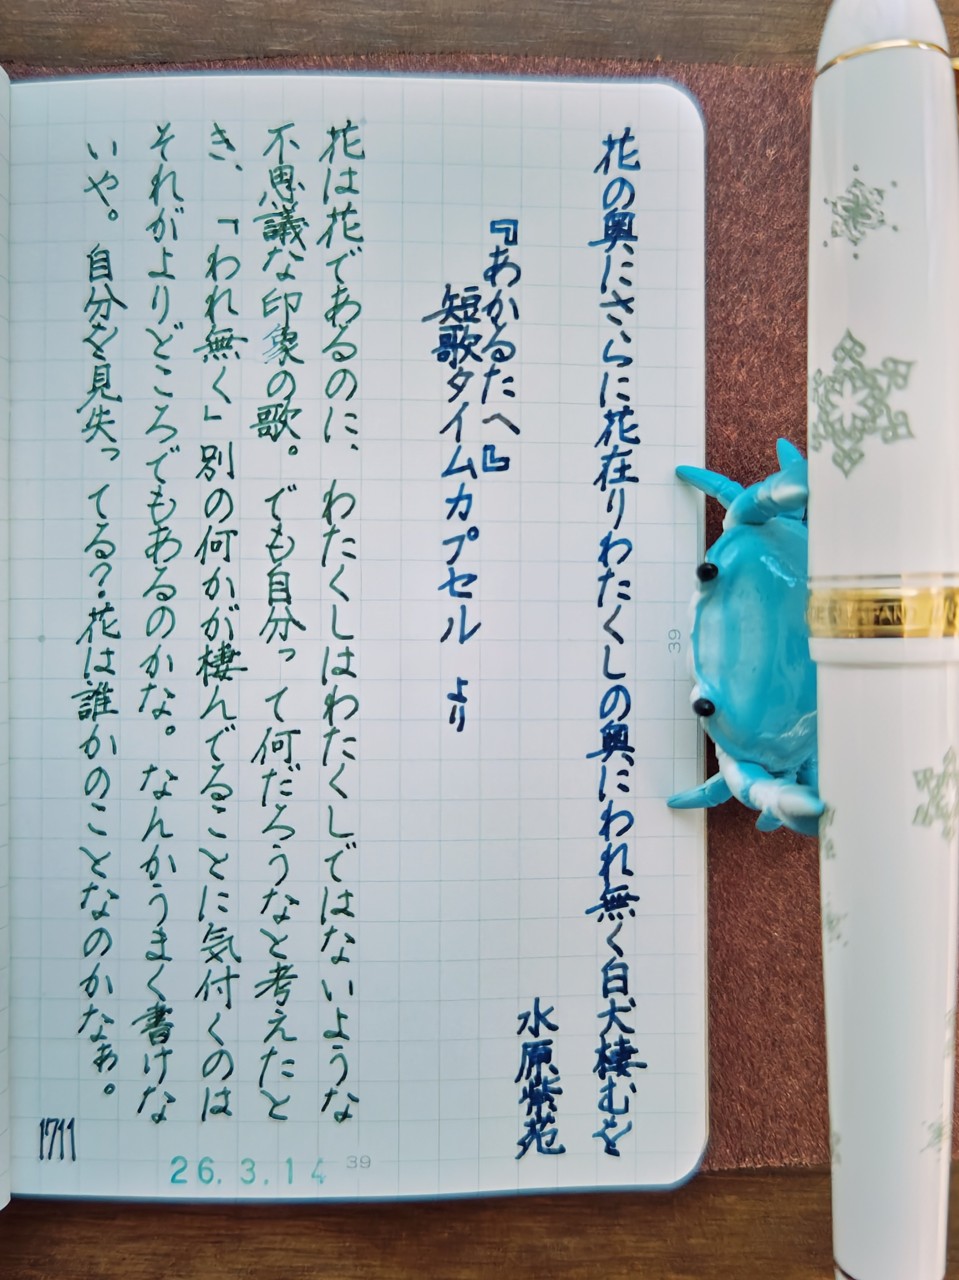 花の奥にさらに花在りわたくしの奥にわれ無く白犬棲むを
水原紫苑
『あかるたへ』
短歌タイムカプセル より
花は花であるのに、わたくしはわたくしではないような
不思議な印象の歌。でも自分って何だろうなと考えたと
き、「われ無く」別の何かが棲んでることに気付くのは
それがよりどころでもあるのかな。なんかうまく書けな
いや。自分を見失ってる?花は誰かのことなのかなぁ。
1711
26.3.14
39
39